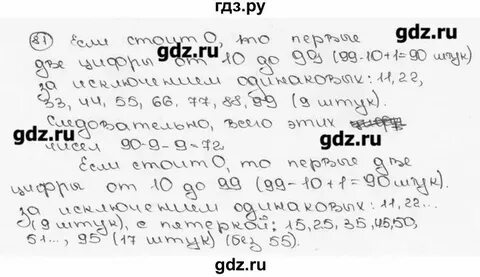 гдз.ру
81 Если стоит 0, то первые
gdz.ru
две цифры от 10 до 99 (99-10+1=90 штук)
gdz.ru
за исключением одинаковых: 11,22,
33, 44, 55, 66, 77, 88, 99 (9 штук).
gdz.ru
Следовательно, всего этих
чисел 90-9-9=72.
gdz.ru
Если стоит 0, то первые две
gdz.ru
цифры от 10 до 99 (99-10+1=90 штук).
за исключением одинаковых: 11,22...
gdz.ru
(9 штук), с петеркой: 15,25, 35, 45,50,
51..., 95 (17 штук) (без 55).
gdz.ru